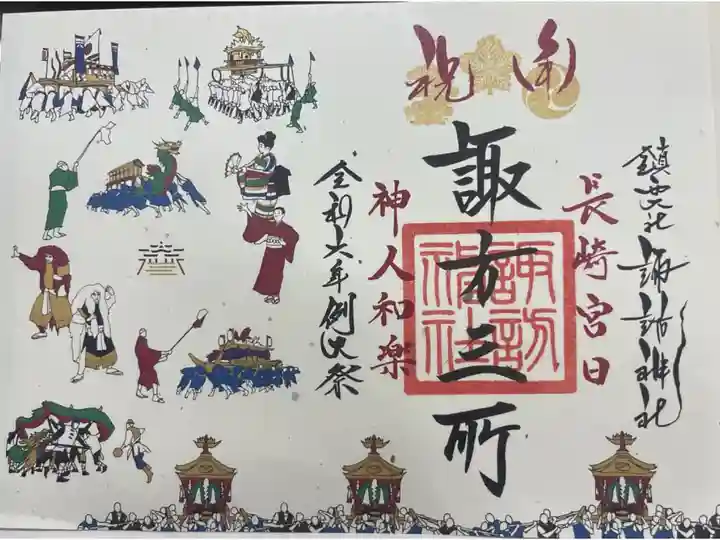 奉祝
鎮西大社 諏訪神社
長崎宮日
諏方三所
諏訪
神社
神人和楽
令和六年例大祭